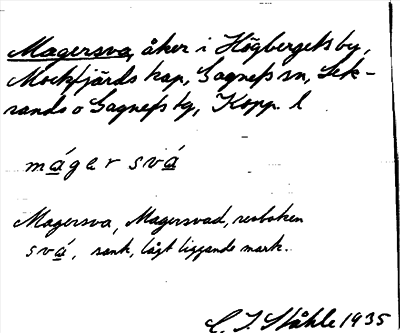 Magersva, åker i Högbergets by,
Mockfjärds kap, Gagnefs sn, Lek-
sands o Gagnefs tg, Kopp. l
máger svá
Magersva, Magersvad, revboken
svá, sank, lågt liggande mark.
C. I. Ståhle 1935